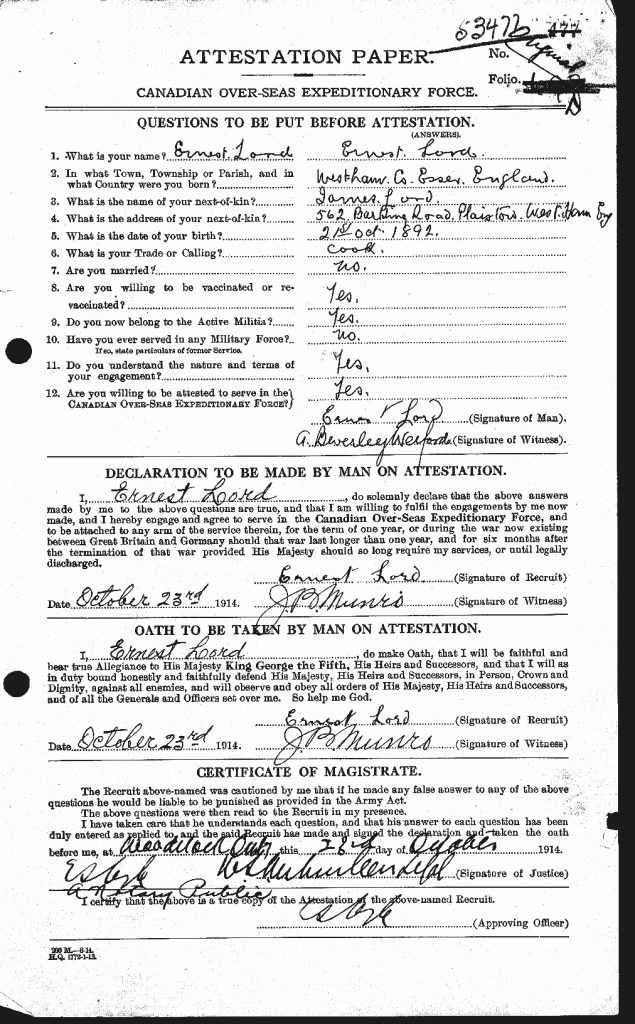 53476
No. 477
ATTESTATION PAPER.
Folio.
CANADIAN OVER-SEAS EXPEDITIONARY FORCE.
QUESTIONS TO BE PUT BEFORE ATTESTATION.
(ANSWERS).
1. What is your name? Ernest Lord Ernest Lord.
2. In what Town, Township or Parish, and in what Country were you born? Westham. Co. Essex. England.
3. What is the name of your next-of-kin? James Lord.
4. What is the address of your next-of-kin? 562 Barking Road. Plaistow. West Ham Eng
5. What is the date of your birth? 21st Oct. 1892.
6. What is your Trade or Calling? Cook.
7. Are you married? no.
8. Are you willing to be vaccinated or re-
vaccinated? Yes.
9. Do you now belong to the Active Militia? Yes.
10. Have you ever served in any Military Force? no.
If so, state particulars of former Service.
11. Do you understand the nature and terms of
your engagement? Yes.
12. Are you willing to be attested to serve in the
CANADIAN OVER-SEAS EXPEDITIONARY FORCE? Yes.
Ernest Lord (Signature of Man).
A. Beverley (Signature of Witness).
DECLARATION TO BE MADE BY MAN ON ATTESTATION.
I, Ernest Lord, do solemnly declare that the above answers
made by me to the above questions are true, and that I am willing to fulfil the engagements by me now
made, and I hereby engage and agree to serve in the Canadian Over-Seas Expeditionary Force, and
to be attached to any arm of the service therein, for the term of one year, or during the war now existing
between Great Britain and Germany should that war last longer than one year, and for six months after
the termination of that war provided His Majesty should so long require my services, or until legally
discharged.
Ernest Lord (Signature of Recruit)
Date October 23rd 1914. J B Munro (Signature of Witness)
OATH TO BE TAKEN BY MAN ON ATTESTATION.
I, Ernest Lord, do make Oath, that I will be faithful and
bear true Allegiance to His Majesty King George the Fifth, His Heirs and Successors, and that I will as
in duty bound honestly and faithfully defend His Majesty, His Heirs and Successors, in Person, Crown and
Dignity, against all enemies, and will observe and obey all orders of His Majesty, His Heirs and Successors,
and of all the Generals and Officers set over me. So help me God.
Ernest Lord (Signature of Recruit)
Date October 23rd 1914. J. B. Munro (Signature of Witness)
CERTIFICATE OF MAGISTRATE.
The Recruit above-named was cautioned by me that if he made any false answer to any of the above
questions he would be liable to be punished as provided in the Army Act.
The above questions were then read to the Recruit in my presence.
I have taken care that he understands each question, and that his answer to each question has been
duly entered as replied to, and the said Recruit has made and signed the declaration and taken the oath
before me, at Woodstock Ont, this 23rd day of October 1914.
(Signature of Justice)
A Notary Public
I certify that the above is a true copy of the Attestation of the above-named Recruit.
(Approving Officer)
200 M.—8-14.
H.Q. 1772-1-13.